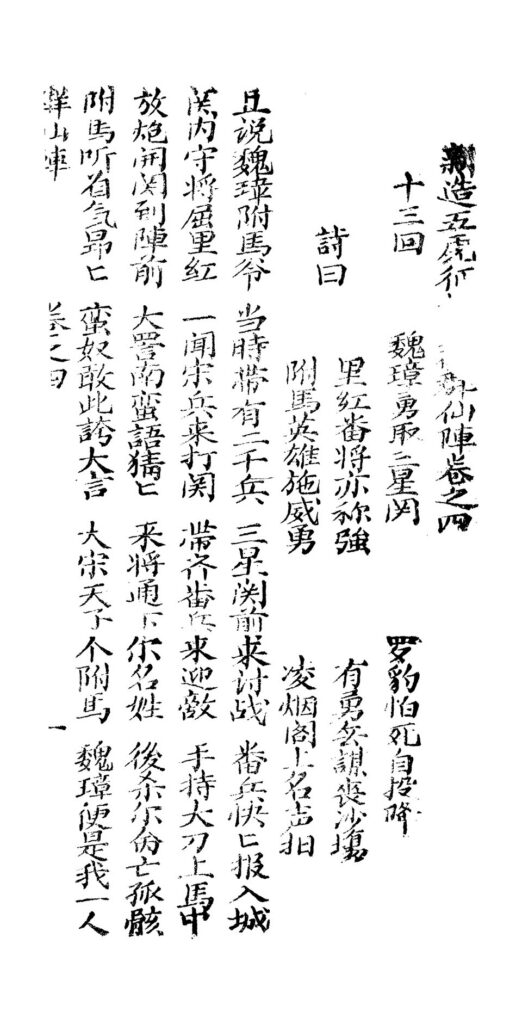 新造五虎征 仙陣卷之四
十三回 魏璋勇取三星関 罗豹怕死自投降
詩曰
里红番将亦称強 有勇无謀喪沙塲
附馬英雄施威勇 凌烟阁上名声扬
且说魏璋附馬爷 当時帯有二千兵 三星関前来讨战 番兵快匕报入城
関内守将屈里红 一闻宋兵来打関 帯齐番兵来迎敌 手持大刀上馬中
放炮開関到陣前 大詈南蛮語猜匕 来将通下尔名姓 後杀尔命亡孤骸
附馬听着气昂匕 蛮奴敢此誇大言 大宋天子个附馬 魏璋便是我一人
山陣 卷之四 一